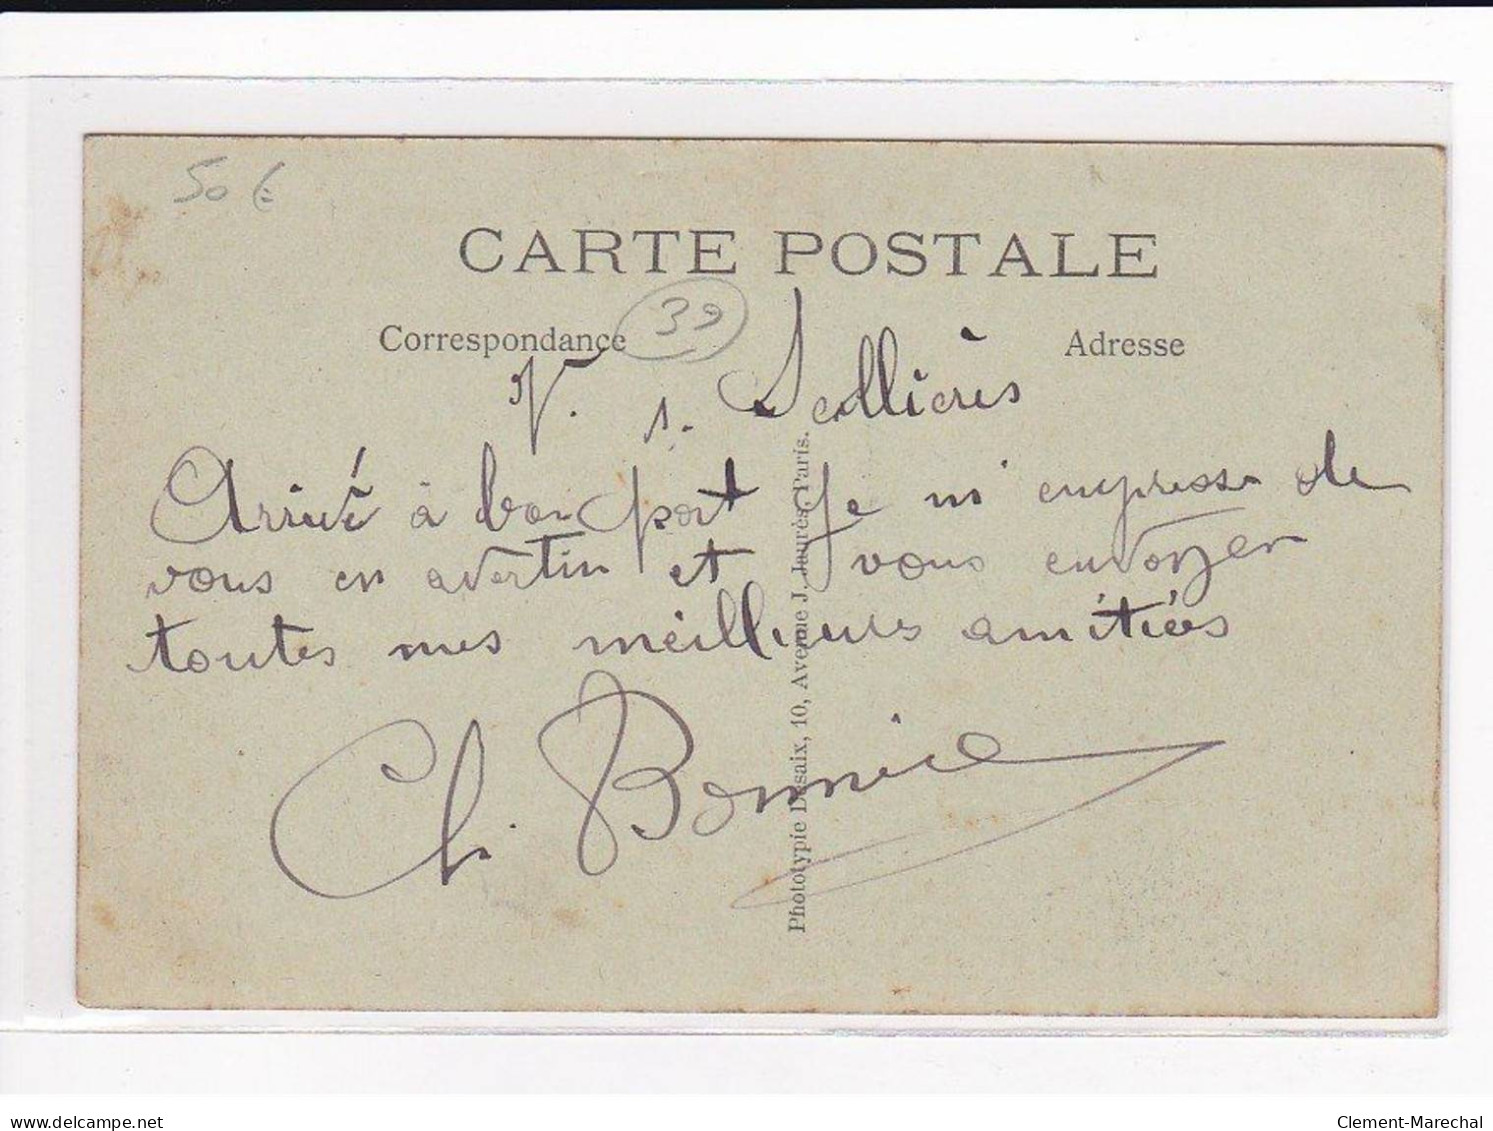 50 €
CARTE POSTALE
Correspondance
39
Adresse
V. s. Sellières
Arrivé à bon port je m'empresse de
vous en avertir et vous envoyer
toutes mes meilleures amitiés
Ch. Bonnice
Phototypie Desaix, 10, Avenue J. Jaurès, Paris.
www.delcampe.net
Clement-Marechal